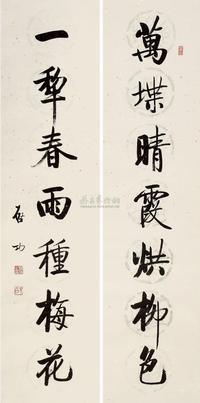 萬堞晴霞烘柳色
一犂春雨種梅花
啟功